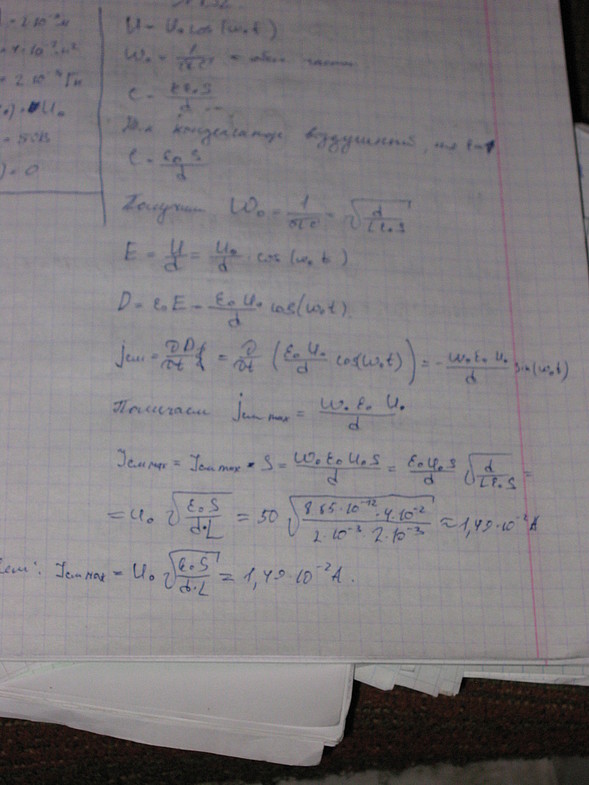 U = U₀ cos(ω₀t)
ω₀ = 1/√(LC) =
C = εε₀S/d
Для конденсатор воздушный,
C = ε₀S/d
Получим ω₀ = 1/√(LC) = √(d/(Lε₀S))
E = U/d = U₀/d · cos(ω₀t)
D = ε₀E = ε₀U₀/d cos(ω₀t)
jсм = ∂D/∂t = ∂/∂t (ε₀U₀/d cos(ω₀t)) = - ω₀ε₀U₀/d sin(ω₀t)
Получаем jсм max = ω₀ε₀U₀/d
Iсм max = jсм max · S = ω₀ε₀U₀S/d = ε₀U₀S/d √(d/(Lε₀S)) =
= U₀ √(ε₀S/(d·L)) = 50 √(8.85·10⁻¹²·4·10⁻²/(2·10⁻³·2·10⁻³)) ≈ 1,49·10⁻²А
Iсм max = U₀ √(ε₀S/(d·L)) = 1,49·10⁻²А.